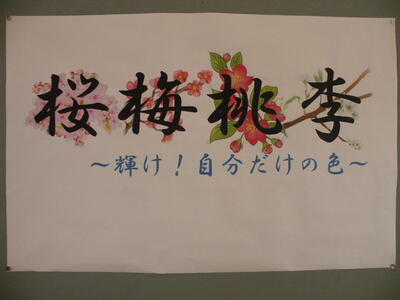 桜梅桃李
～輝け！自分だけの色～